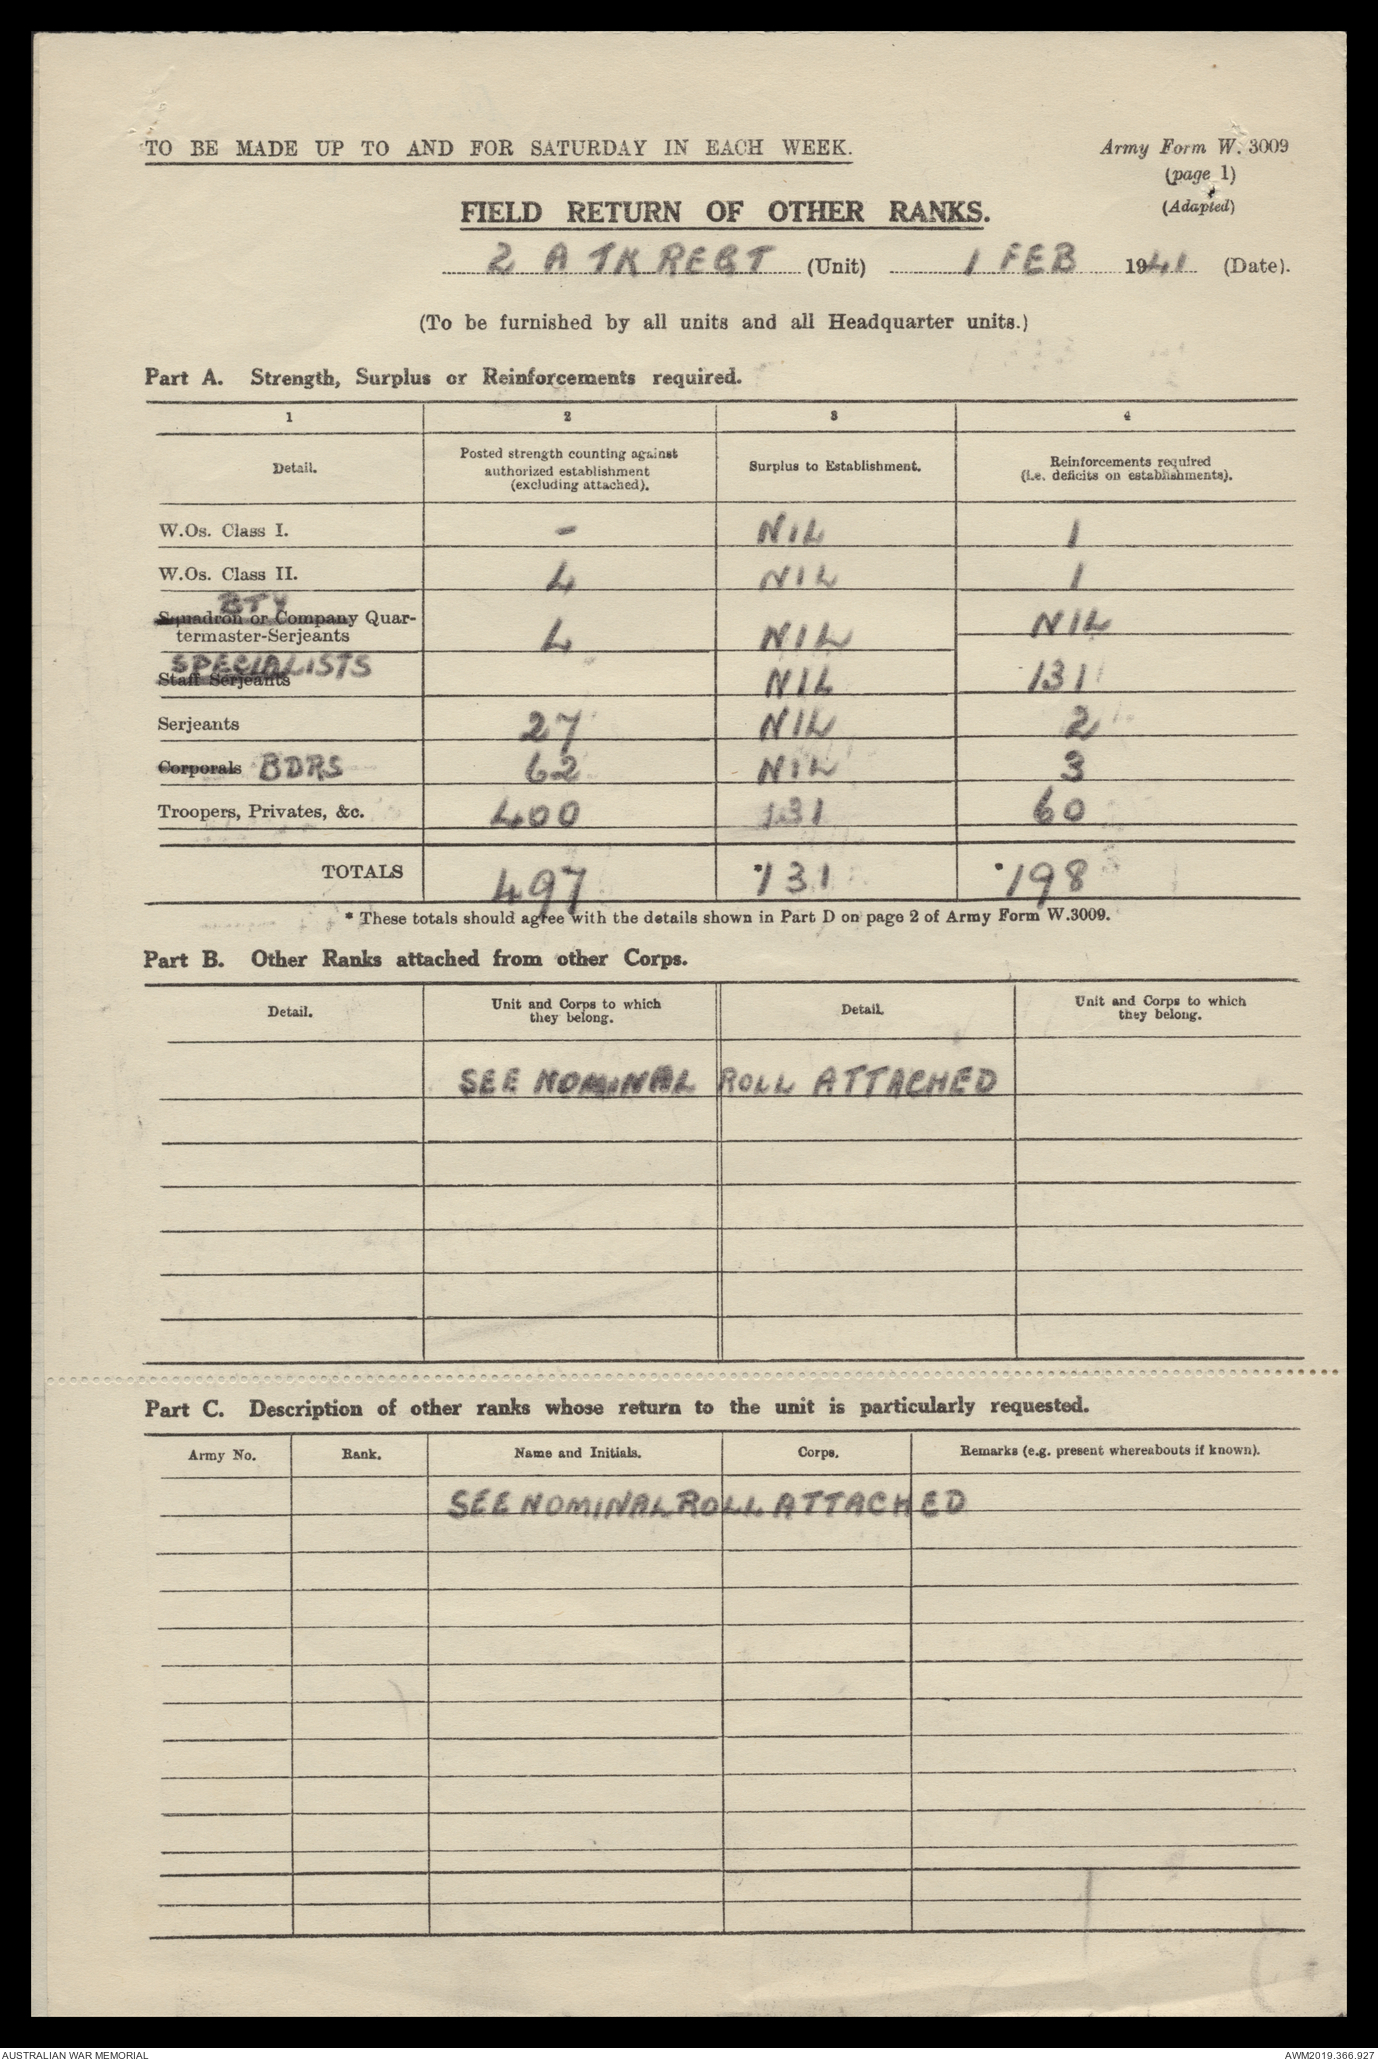 TO BE MADE UP TO AND FOR SATURDAY IN EACH WEEK.
Army Form W. 3009
(page 1)
(Adapted)
FIELD RETURN OF OTHER RANKS.
2 A TK REGT (Unit) 1 FEB 1941 (Date).
(To be furnished by all units and all Headquarter units.)
Part A. Strength, Surplus or Reinforcements required.
1 2 3 4
Detail. Posted strength counting against authorized establishment (excluding attached). Surplus to Establishment. Reinforcements required (i.e. deficits on establishments).
W.Os. Class I. - NIL 1
W.Os. Class II. 4 NIL 1
BTY
Squadron or Company Quar-
termaster-Serjeants 4 NIL NIL
SPECIALISTS
Staff Serjeants NIL 131
Serjeants 27 NIL 2
Corporals BDRS 62 NIL 3
Troopers, Privates, &c. 400 131 60
TOTALS 497 *131 *198
* These totals should agree with the details shown in Part D on page 2 of Army Form W.3009.
Part B. Other Ranks attached from other Corps.
Detail. Unit and Corps to which they belong. Detail. Unit and Corps to which they belong.
SEE NOMINAL ROLL ATTACHED
Part C. Description of other ranks whose return to the unit is particularly requested.
Army No. Rank. Name and Initials. Corps. Remarks (e.g. present whereabouts if known).
SEE NOMINAL ROLL ATTACHED
AUSTRALIAN WAR MEMORIAL
AWM2019.366.927